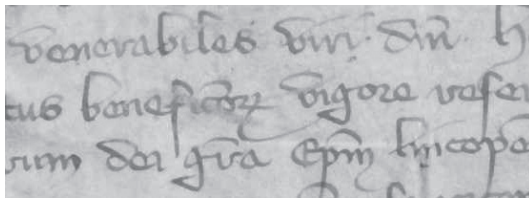 venerabiles viri dn̄i h
tus beneficioꝝ vigore refer
rum dei gr̄a Ep̄m lincopen